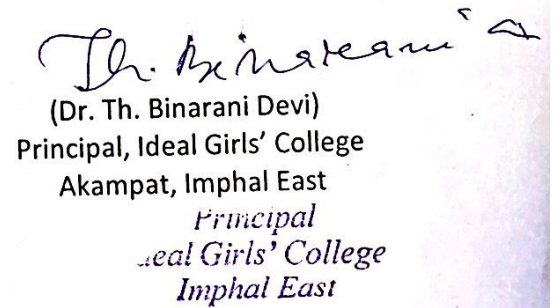 Th. Binarani
(Dr. Th. Binarani Devi)
Principal, Ideal Girls' College
Akampat, Imphal East
Principal
eal Girls' College
Imphal East